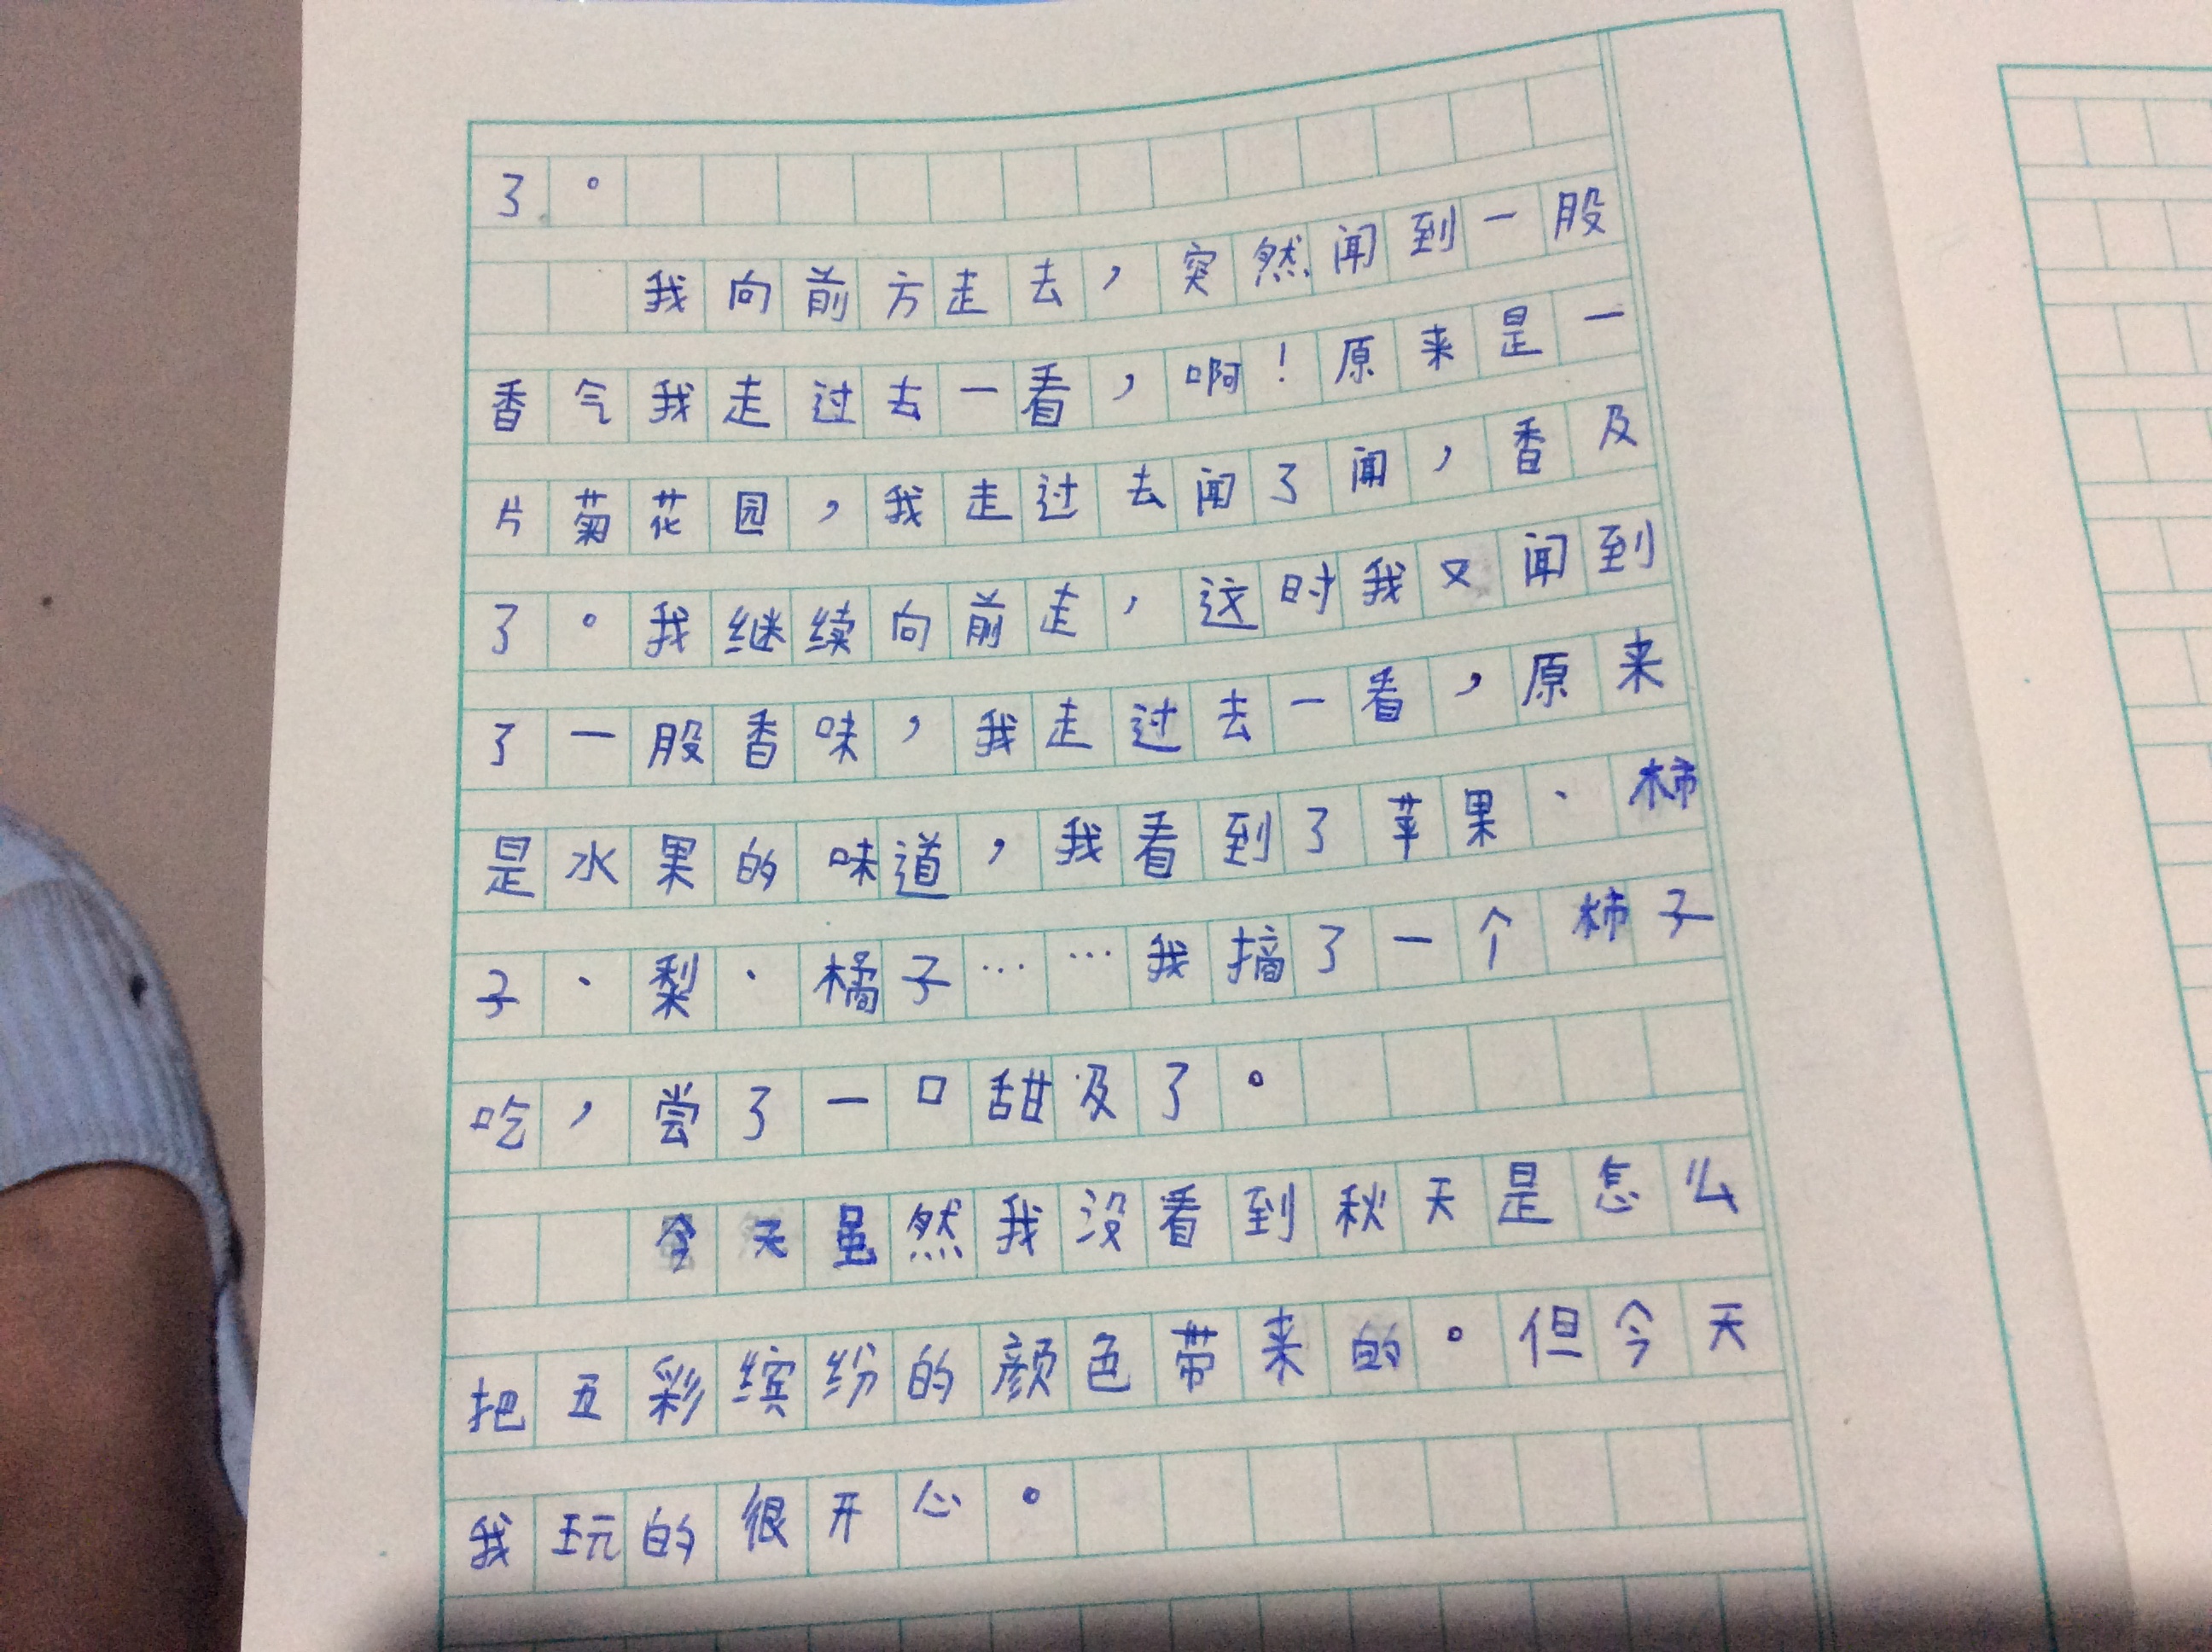 了。
我向前方走去，突然闻到一股
香气我走过去一看，啊！原来是一
片菊花园，我走过去闻了闻，香及
了。我继续向前走，这时我又闻到
了一股香味，我走过去一看，原来
是水果的味道，我看到了苹果、柿
子、梨、橘子……我摘了一个柿子
吃，尝了一口甜及了。
今天虽然我没看到秋天是怎么
把五彩缤纷的颜色带来的。但今天
我玩的很开心。